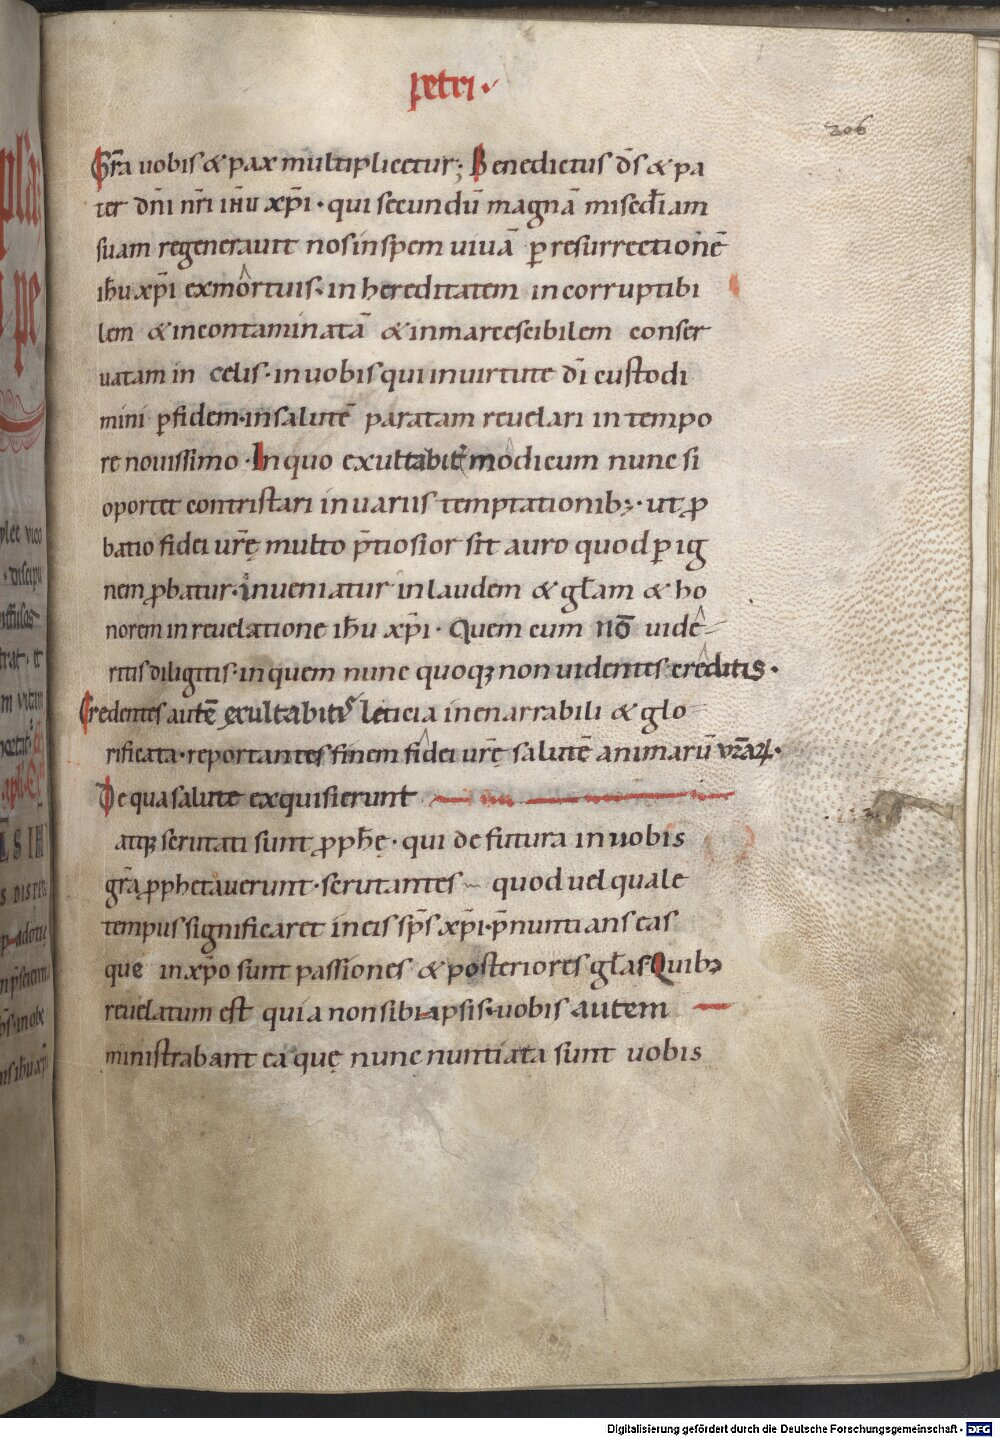 petri.
206
Gr̄a uobis & pax multiplicetur; Benedictus d̄s & pa
ter dn̄i nr̄i ih̄u xp̄i · qui secundū magnā miscd̄iam
suam regenerauit nos in spem uiuā ꝑ resurrectionē
ih̄u xp̄i ex mortuis · in hereditatem incorruptibi
lem & incontaminatā & inmarcescibilem conser
uatam in celis · in uobis qui in uirtute dī custodi
mini ꝑ fidem · in salutē paratam reuelari in tempo
re nouissimo · In quo exultabit modicum nunc si
oportet contristari in uariis temptationib; · ut ꝓ
batio fidei ur̄ę multo p̄tiosior sit auro quod ꝑ ig
nem ꝓbatur · inueniatur in laudem & gl̄am & ho
norem in reuelatione ih̄u xp̄i · Quem cum nō uide
ritis diligitis · in quem nunc quoq; non uidentes creditis ·
Credentes autē exultabit leticia inenarrabili & glo
rificata · reportantes finem fidei ur̄ę salutē animarū vr̄aꝝ ·
De qua salute exquisierunt
atq; scrutati sunt ꝓph̄ę · qui de futura in uobis
gr̄a ꝓphetauerunt · scrutantes quod uel quale
tempus significaret in eis sp̄s xp̄i · p̄nuntians eas
que in xp̄o sunt passiones & posteriores gl̄as Quib;
reuelatum est quia non sibi ipsis · uobis autem
ministrabant ea quę nunc nuntiata sunt uobis
Digitalisierung gefördert durch die Deutsche Forschungsgemeinschaft - DFG